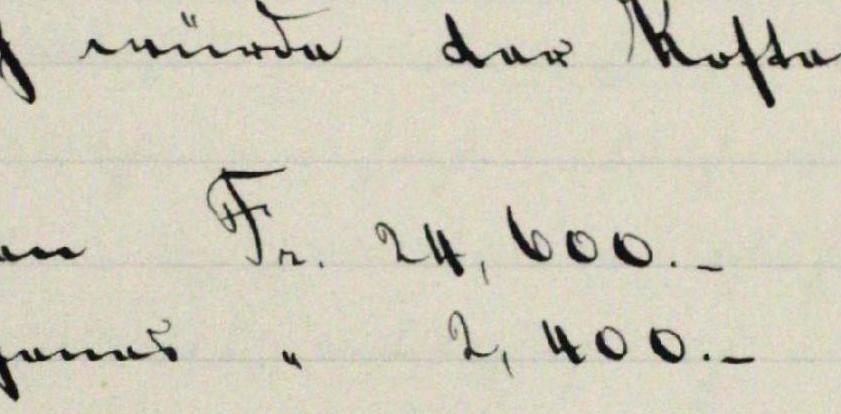 würde der Koste
en Fr. 24,600.–
genes " 2,400.–